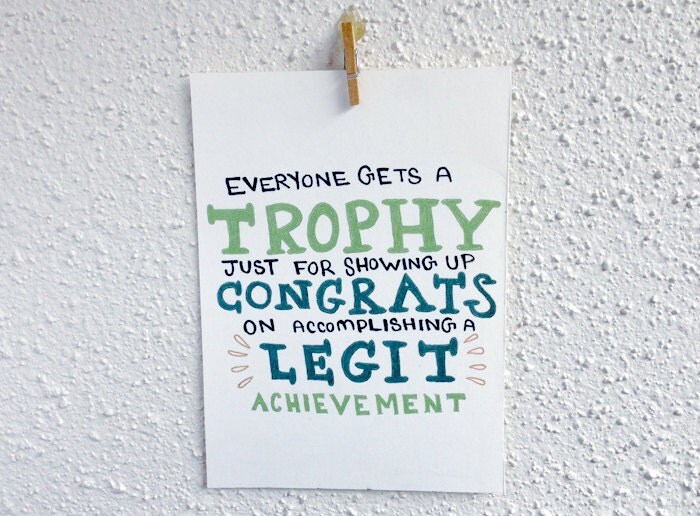 EVERYONE GETS A
TROPHY
JUST FOR SHOWING UP
CONGRATS
ON ACCOMPLISHING A
LEGIT
ACHIEVEMENT